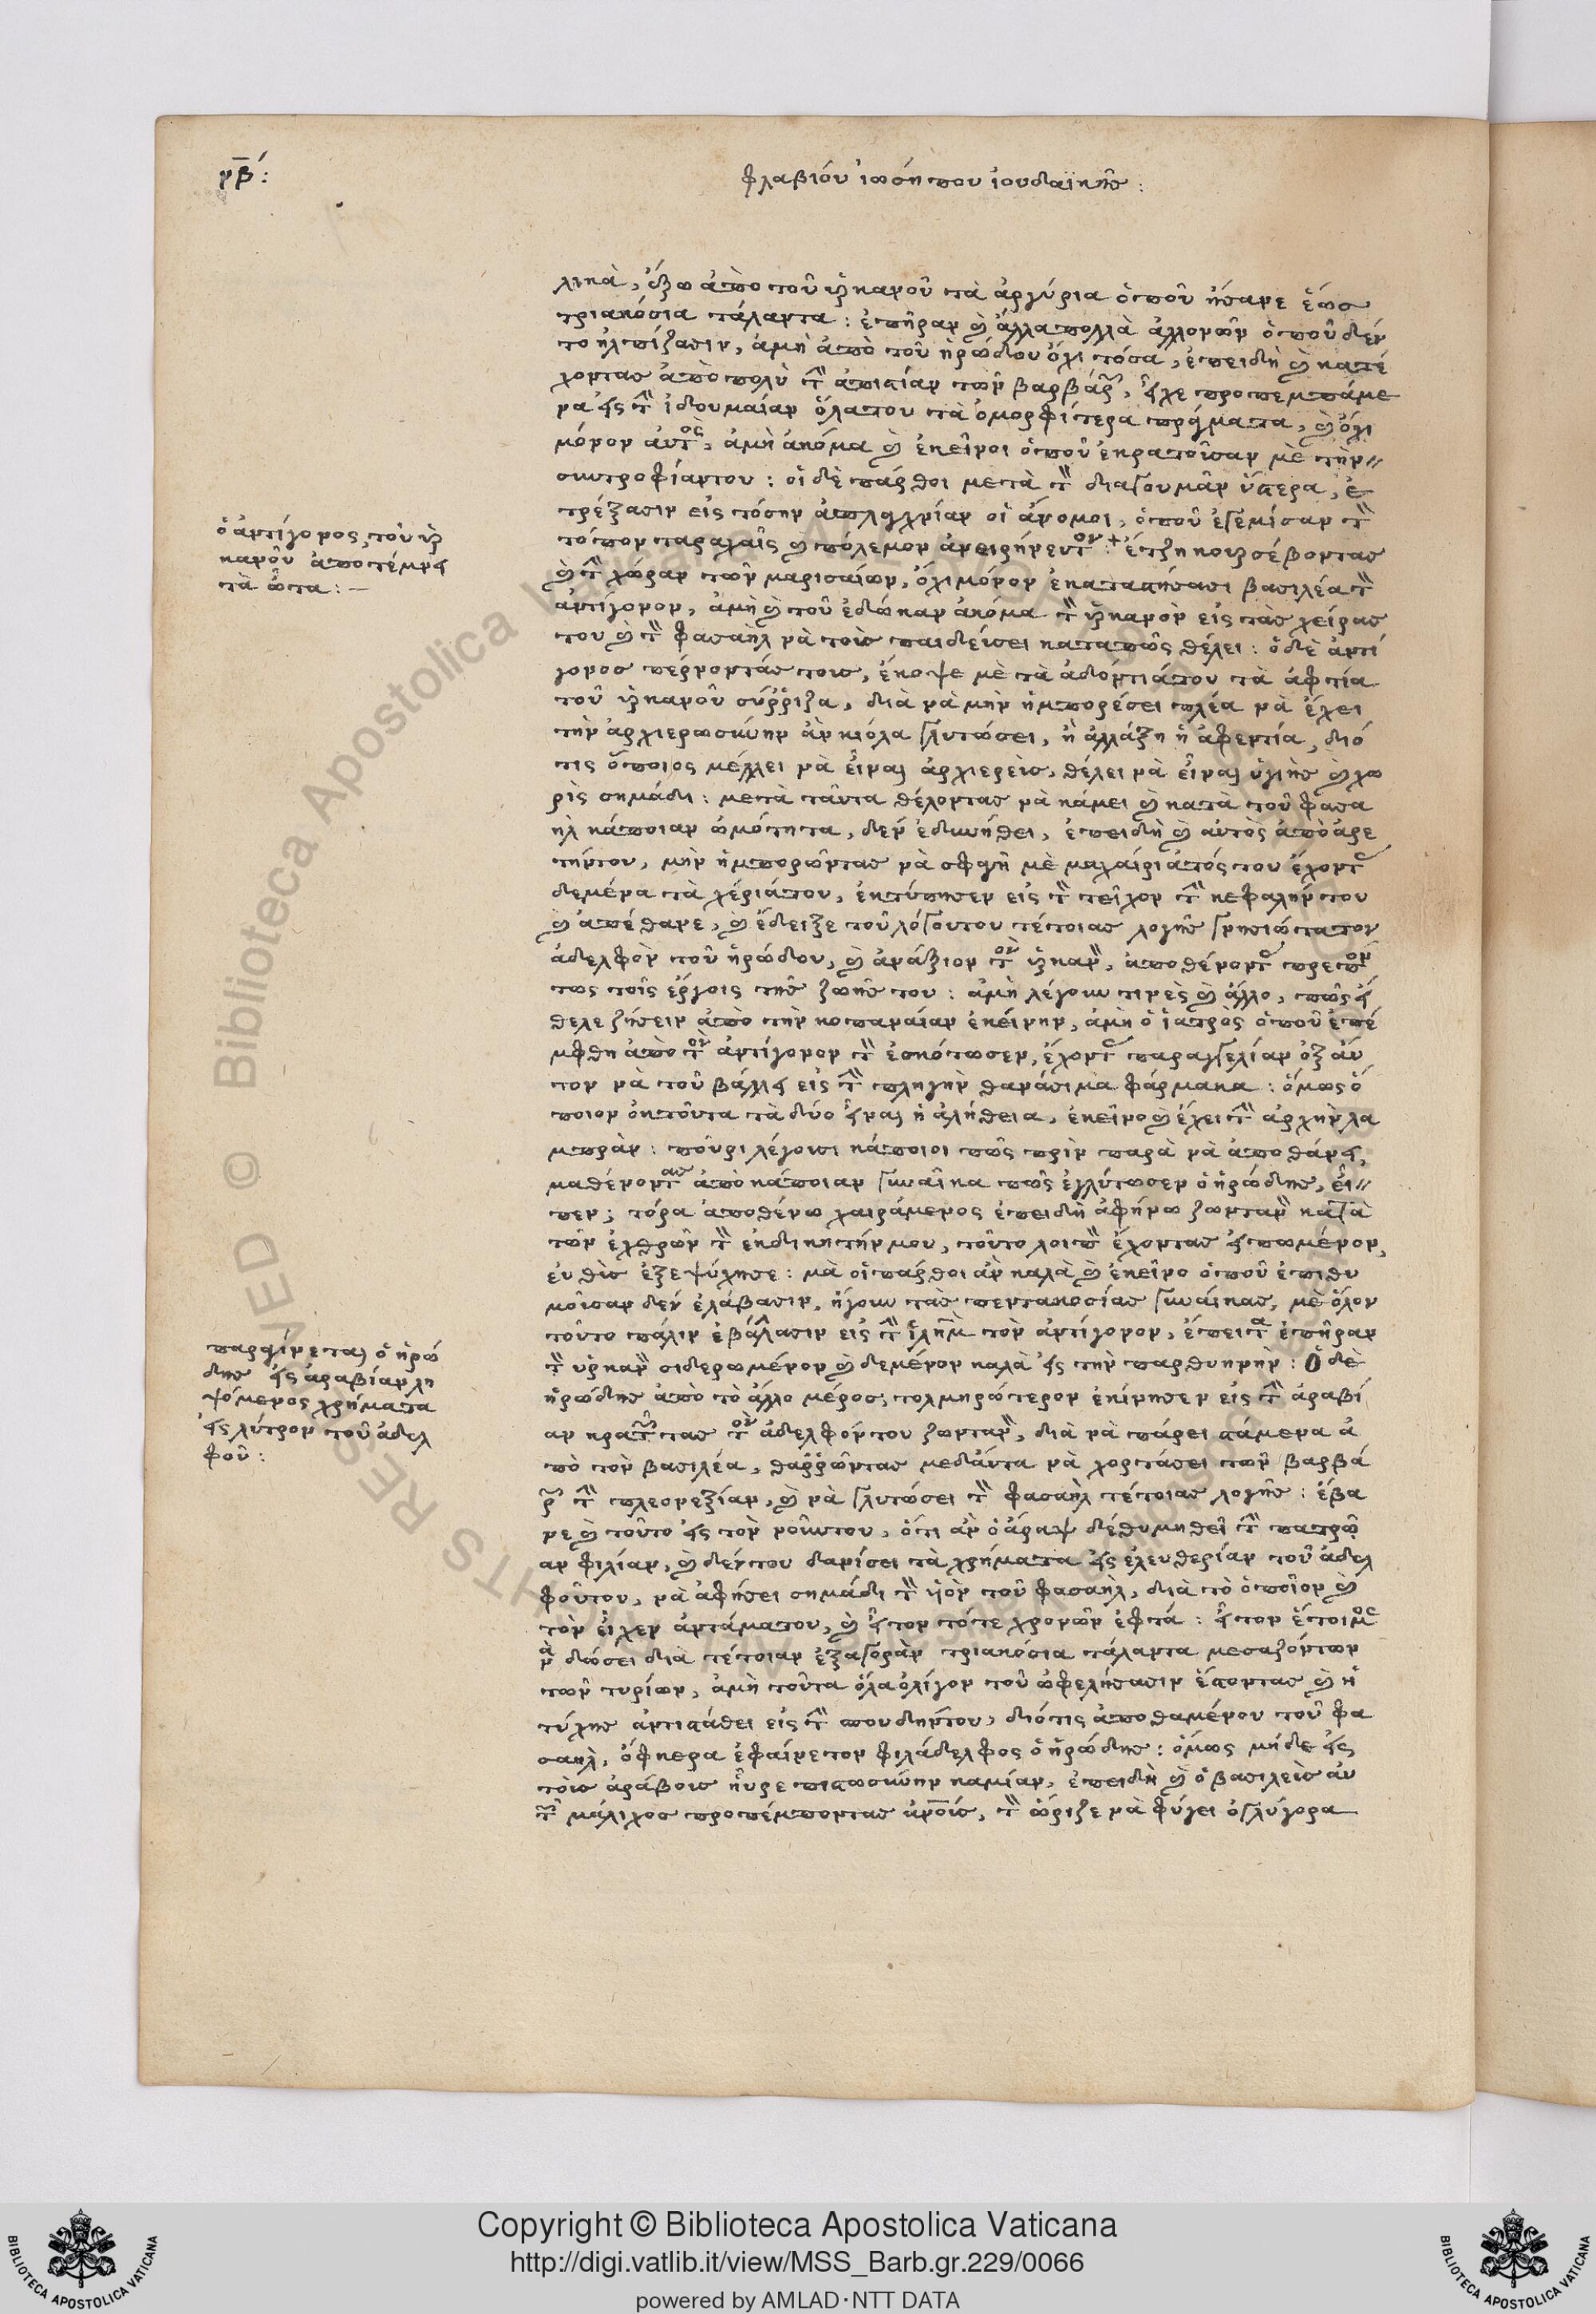 νβ´:
φλαβιόυ ἰωσήπου ἰουδαϊκῆς :
λικὰ, ἔξω ἀπὸ τοῦ ὑρκανοῦ τὰ ἀργύρια ὁποῦ ἤσανε ἕως
τριακόσια τάλαντα : ἐπῆραν καὶ ἄλλα πολλὰ ἀλλονῶν ὁποῦ δὲν
το ἠλπίζασιν, ἀμὴ ἀπὸ τοῦ ἡρώδου ὄχι τόσα, ἐπειδὴ καὶ κατέ
χοντας ἀπὸ πολὺ τὴν ἀπιστίαν τῶν βαρβάρων, εἶχε προπεμπάμε
να εἰς τὴν ἰδουμαίαν ὅλα του τὰ ὀμορφίτερα πράγματα, καὶ ὄχι
μόνον αὐτὸς, ἀμὴ ἀκόμα καὶ ἐκεῖνοι ὁποῦ ἐκρατοῦσαν μὲ τὴν
συντροφίαν του : οἱ δὲ πάρθοι μετὰ τὸ διαγουμᾶν ὕστερα, ἐ
τρέξασιν εἰς τόσην ἀσπλαγχνίαν οἱ ἄνομοι, ὁποῦ ἐγεμίσαν τὸν
τόπον ταραχαῖς καὶ πόλεμον ἀνειρήνευτον : + ἔτζη κουρσέβοντας
καὶ τὴν χώραν τῶν μαρισαίων, ὄχι μόνον ἐκαταστήσασι βασιλέα τὸν
ἀντίγονον, ἀμὴ καὶ τοῦ ἐδώκαν ἀκόμα τὸν ὑρκανὸν εἰς τὰς χείρας
του καὶ τὸν φασαὴλ νὰ τοὺς παιδεύσει καταπῶς θέλει : ὁ δὲ ἀντί
γονος πέρνοντάς τους, ἔκοψε μὲ τὰ ἀδόντιά του τὰ ἀφτία
τοῦ ὑρκανοῦ σύῤῥιζα, διὰ νὰ μὴν ἠμπορέσει πλέα νὰ ἔχει
τὴν ἀρχιερωσύνην ἂν κιόλα γλυτώσει, ἢ ἀλλάξη ἡ ἀφεντία, διό
τις ὅποιος μέλλει νὰ εἶναι ἀρχιερεὺς, θέλει νὰ εἶναι ὑγιὴς καὶ χω
ρὶς σημάδι : μετὰ ταῦτα θέλοντας νὰ κάμει καὶ κατὰ τοῦ φασα
ὴλ κάποιαν ὠμότητα, δὲν ἐδυνήθει, ἐπειδὴ καὶ αὐτὸς ἀπὸ ἀρε
τήντου, μὴν ἠμπορῶντας νὰ σφαγῆ μὲ μαχαίρι ἀτός του ἔχοντας
δεμένα τὰ χέριάτου, ἐκτύπησεν εἰς τὸν τεῖχον τὴν κεφαλήν του
καὶ ἀπέθανε, καὶ ἔδειξε τοῦ λόγουτου τέτοιας λογῆς γνησιώτατον
ἀδελφὸν τοῦ ἡρώδου, καὶ ἀνάξιον τὸν ὑρκανὸν, ἀποθένοντας πρεπόν
τως τοῖς ἔργοις τῆς ζωῆς του : ἀμὴ λέγουν τινὲς καὶ ἄλλο, πῶς ἤ
θελε ζήσειν ἀπὸ τὴν κοπαναίαν ἐκείνην, ἀμὴ ὁ ἰατρὸς ὁποῦ ἐπέ
μφθη ἀπὸ τὸν ἀντίγονον τὸν ἐσκότωσεν, ἔχοντας παραγγελίαν ὀξ αὐ
τον νὰ τοῦ βάλλει εἰς τὴν πληγὴν θανάσιμα φάρμακα : ὅμως ὅ
ποιον ὀκτοῦτα τὰ δύο εἶναι ἡ ἀλήθεια, ἐκεῖνο καὶ ἔχει τὴν ἀρχὴν λα
μπράν : ποῦρι λέγουσι κάποιοι πῶς πρὶν παρὰ νὰ ἀποθάνει,
μαθένοντας ἀπὸ κάποιαν γυναῖκα πῶς ἐγλύτωσεν ὁ ἡρώδης, εἶ
πεν ; τόρα ἀποθένω χαιράμενος ἐπειδὴ ἀφήνω ζωντανὸν κατὰ
τῶν ἐχθρῶν τὸν ἐκδικητήν μου, τοῦτο λοιπὸν ἔχοντας εἰπωμένον,
εὐθὺς ἐξεψύχησε : μὰ οἱ πάρθοι ἂν καλὰ καὶ ἐκεῖνο ὁποῦ ἐπιθυ
μοῦσαν δὲν ἐλάβασιν, ἤγουν τὰς πεντακοσίας γυναίκας, μὲ ὅλον
τοῦτο πάλιν ἐβάλλασιν εἰς τὴν ἱλὴμ τὸν ἀντίγονον, ἔπειτα ἐπῆραν
τὸν ὑρκανὸν σιδερωμένον καὶ δεμένον καλὰ εἰς τὴν παρθυηνὴν : Ὁ δὲ
ἡρώδης ἀπὸ τὸ ἄλλο μέρος, τολμηρώτερον ἐκίνησεν εἰς τὴν ἀραβί
αν κρατῶντας τὸν ἀδελφόν του ζωντανὸν, διὰ νὰ πάρει στάμενα ἀ
πὸ τὸν βασιλέα, θαῤῥῶντας μεδαῦτα νὰ χορτάσει τῶν βαρβά
ρων τὴν πλεονεξίαν, καὶ νὰ γλυτώσει τὸν φασαὴλ τέτοιας λογῆς : ἔβα
νε καὶ τοῦτο εἰς τὸν νοῦν του, ὅτι ἂν ὁ ἄραψ δὲθυμηθεῖ τὴν πατρῶ
αν φιλίαν, καὶ δέν του δανίσει τὰ χρήματα εἰς ἐλευθερίαν τοῦ ἀδελ
φοῦτου, νὰ ἀφήσει σημάδι τὸν ὑιὸν τοῦ φασαὴλ, διὰ τὸ ὁποῖον καὶ
τὸν εἶχεν ἀντάματου, καὶ εἶτον τότε χρονῶν ἑφτά : εἶτον ἕτοιμος
νὰ δώσει διὰ τέτοιαν ἐξαγορὰν τριακόσια τάλαντα μεσαζόντων
τῶν τυρίων, ἀμὴ τοῦτα ὅλα ὀλίγον τοῦ ὠφελήσασιν ἔστοντας καὶ ἡ
τύχης ἀντιστάθει εἰς τὴν σπουδήντου, διότις ἀποθαμένου τοῦ φα
σαὴλ, ὄφκερα ἐφαίνετον φιλάδελφος ὁ ἡρώδης : ὅμως μήδε εἰς
τοὺς ἀράβους ηὗρε πιστωσύνην καμίαν, ἐπειδὴ καὶ ὁ βασιλεὺς αὐ
τῶν μάλιχος προπέμποντας αὐτοὺς, τὸν ὥριζε νὰ φύγει ὀγλύγορα
ὁ ἀντίγονος, τὸν ὑρ
κανοῦ ἀποτέμνει
τὰ ὦτα : —
παραγίνεται ὁ ἡρώ
δης εἰς ἀραβίαν λη
ψόμενος χρήματα
εἰς λύτρον τοῦ ἀδελ
φοῦ :
Copyright © Biblioteca Apostolica Vaticana
http://digi.vatlib.it/view/MSS_Barb.gr.229/0066
powered by AMLAD·NTT DATA